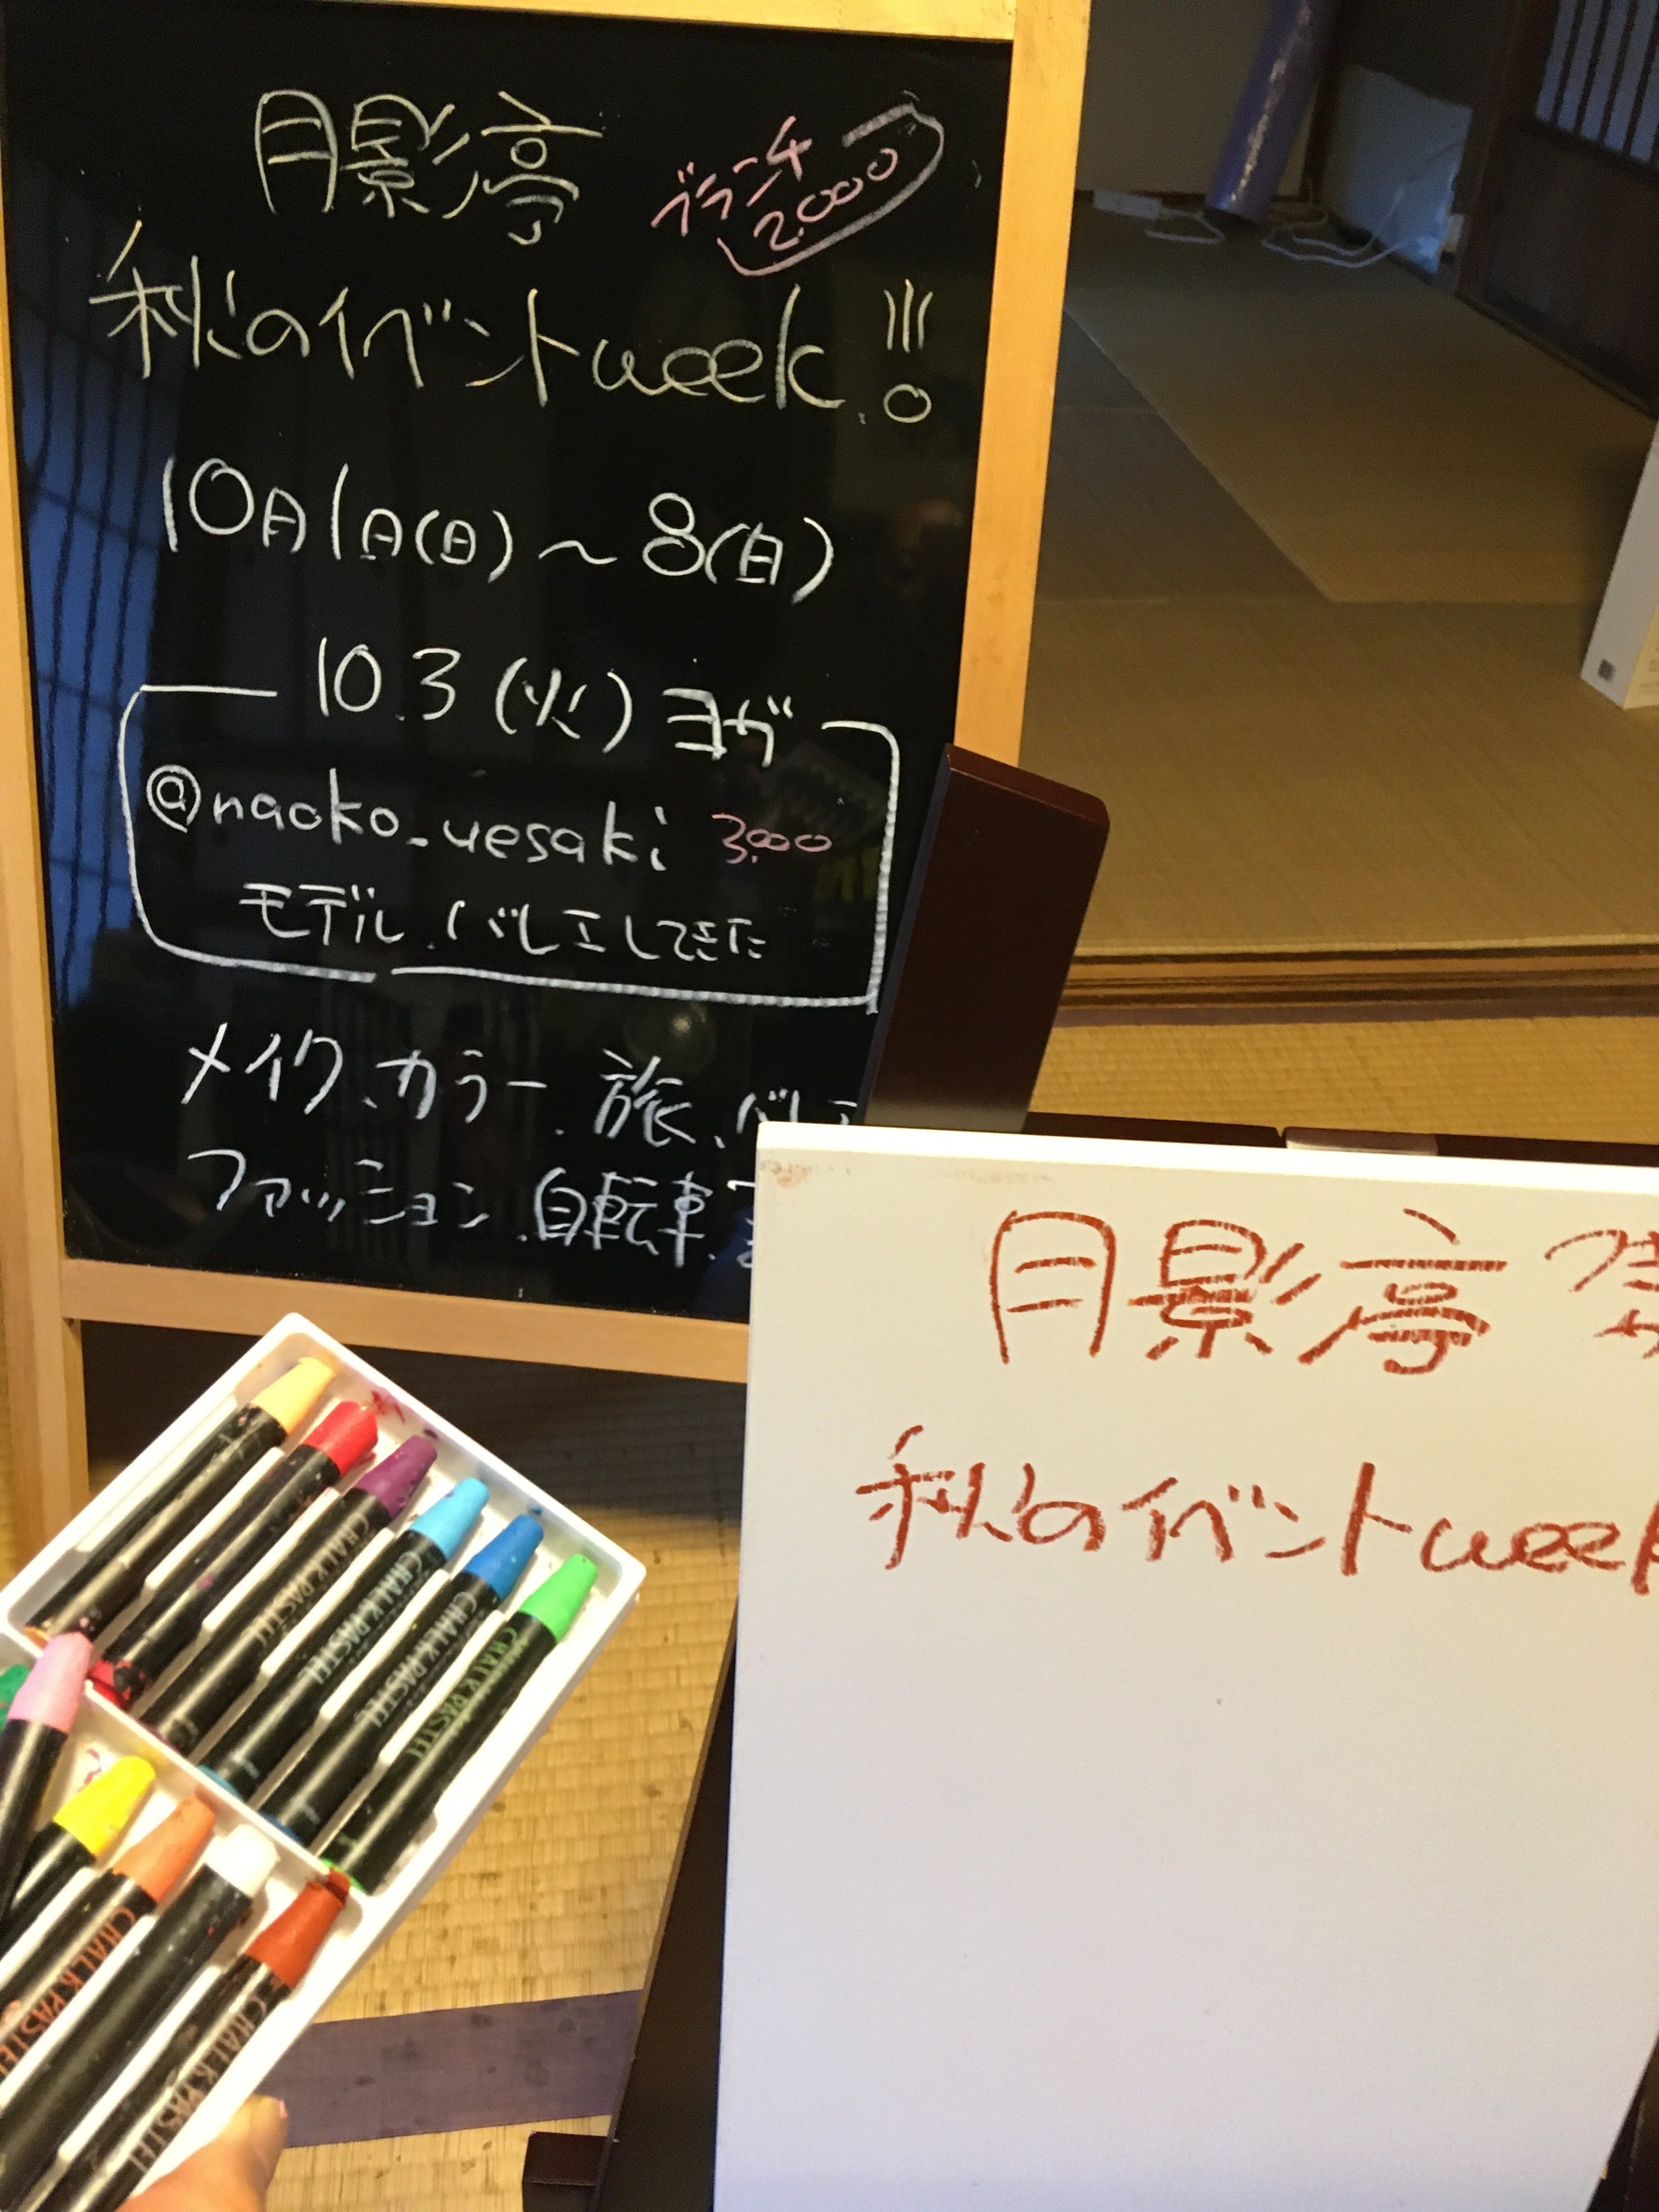 月影亭
ブランチ
2.000
秋のイベントweek!!!
10月1日(日)～8(日)
10.3(火)ヨガ
@naoko_uesaki 3.000
モデル.バレエしてきた
メイク、カラー.旅、バレエ
ファッション.自転車.
月影亭
秋のイベントweek
CHALK PASTEL
CHALK PASTEL
CHALK PASTEL
CHALK PASTEL
CHALK PASTEL
CHALK PASTEL